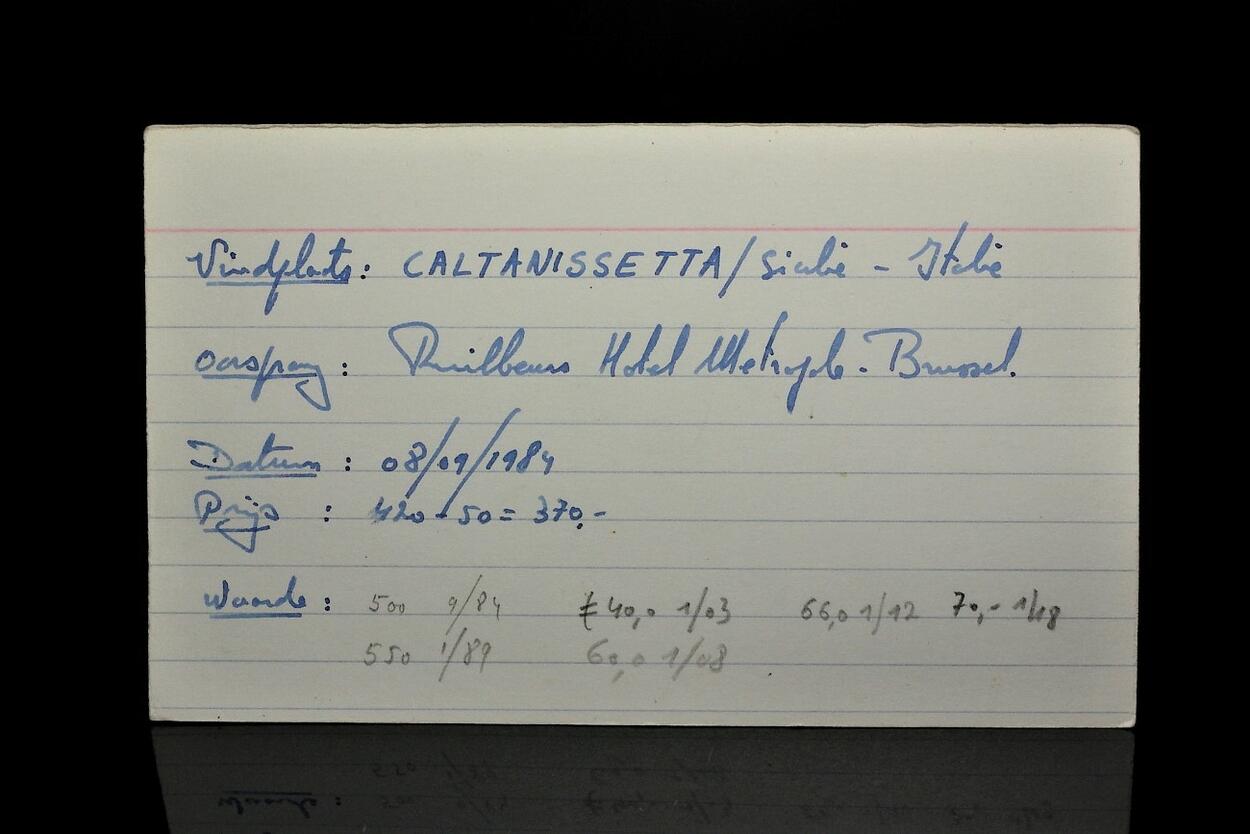 Vindplaats: CALTANISSETTA/Sicilië - Italië
oorsprong: Ruilbeurs Hotel Metropole - Brussel.
Datum: 08/09/1984
Prijs: 420 - 50 = 370,-
Waarde: 500 9/84 40,0 1/03 66,0 1/12 70,- 1/18
550 1/89 60,0 1/08